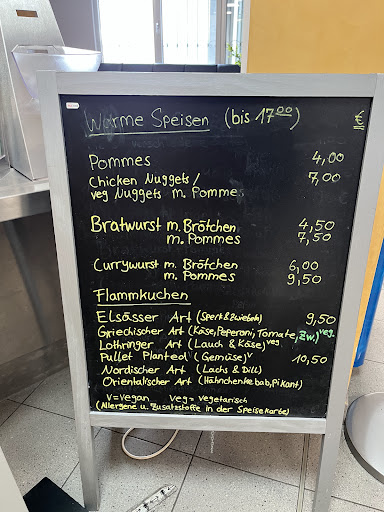 Warme Speisen (bis 17⁰⁰) €
Pommes 4,00
Chicken Nuggets / 7,00
veg Nuggets m. Pommes
Bratwurst m. Brötchen 4,50
m. Pommes 7,50
Currywurst m. Brötchen 6,00
m. Pommes 9,50
Flammkuchen
Elsässer Art (Speck & Zwiebeln) 9,50
Griechischer Art (Käse, Peperoni, Tomate, Zw.) veg.
Lothringer Art (Lauch & Käse) veg
Pullet Planted (Gemüse) v 10,50
Nordischer Art (Lachs & Dill)
Orientalischer Art (Hähnchenkebab, Pikant)
V=vegan veg= vegetarisch
(Allergene u. Zusatzstoffe in der Speisekarte)